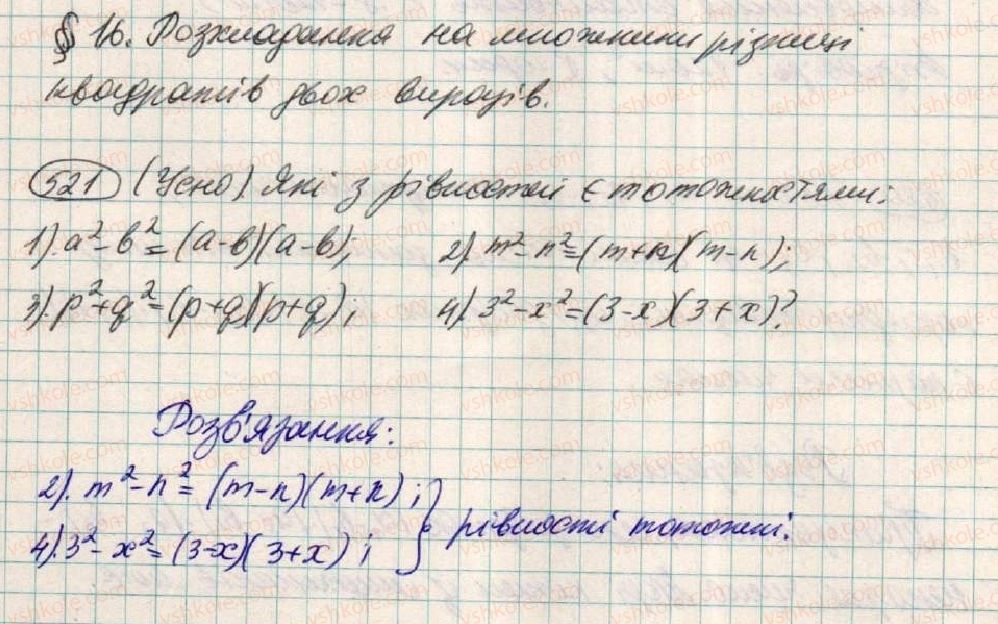 § 16. Розкладання на множники різниці
квадратів двох виразів.
521 (Усно) Які з рівностей є тотожностями:
1). a² - b² = (a-b)(a-b); 2). m² - n² = (m+n)(m-n);
3). p² + q² = (p+q)(p+q); 4). 3² - x² = (3-x)(3+x)?
Розв'язання:
2). m² - n² = (m-n)(m+n);
4). 3² - x² = (3-x)(3+x);
} рівності тотожні.